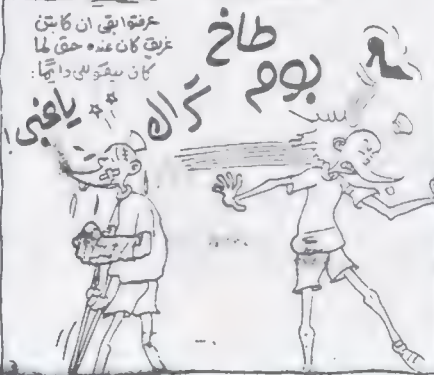 عرفتوا بقى ان كابتن
غريق كان عنده حق لما
كان بيقوللى دايمًا:
يا غبى!
طاخ
بوم
تراك